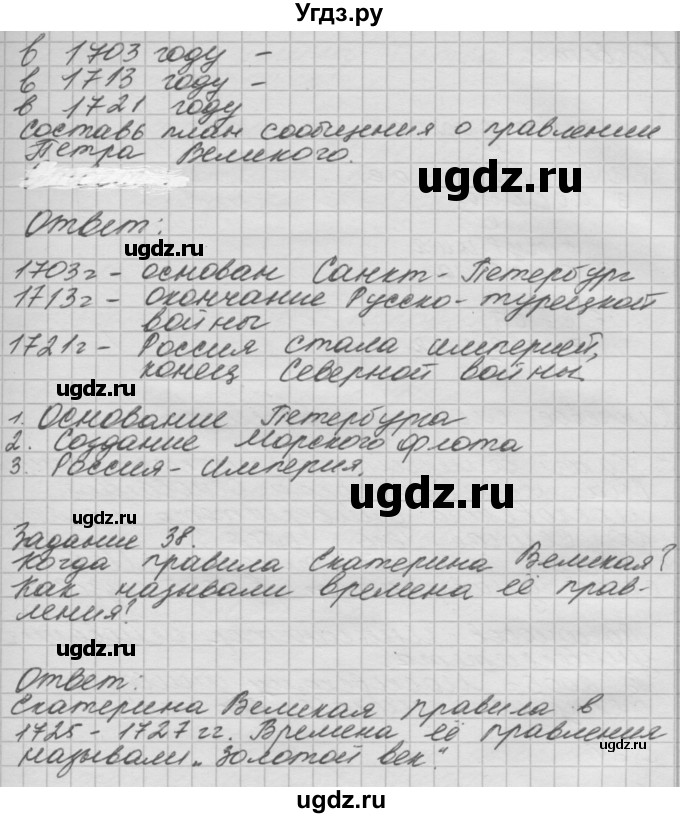 Угдз.ру
в 1703 году -
в 1713 году -
в 1721 году
составь план сообщения о правлении
Петра Великого.
ugdz.ru
Ответ:
ugdz.ru
1703г - основан Санкт-Петербург
1713г - окончание Русско-турецкой
войны
1721г - Россия стала империей,
конец Северной войны
ugdz.ru
1. Основание Петербурга
2. Создание Морского флота
3. Россия - Империя.
ugdz.ru
ugdz.ru
Задание 38.
Когда правила Екатерина Великая?
Как называли времена её прав-
ления?
ugdz.ru
Ответ:
Екатерина Великая правила в
1725 - 1727 гг. Времена её правления
называли „Золотой век".
ugdz.ru
ugdz.ru